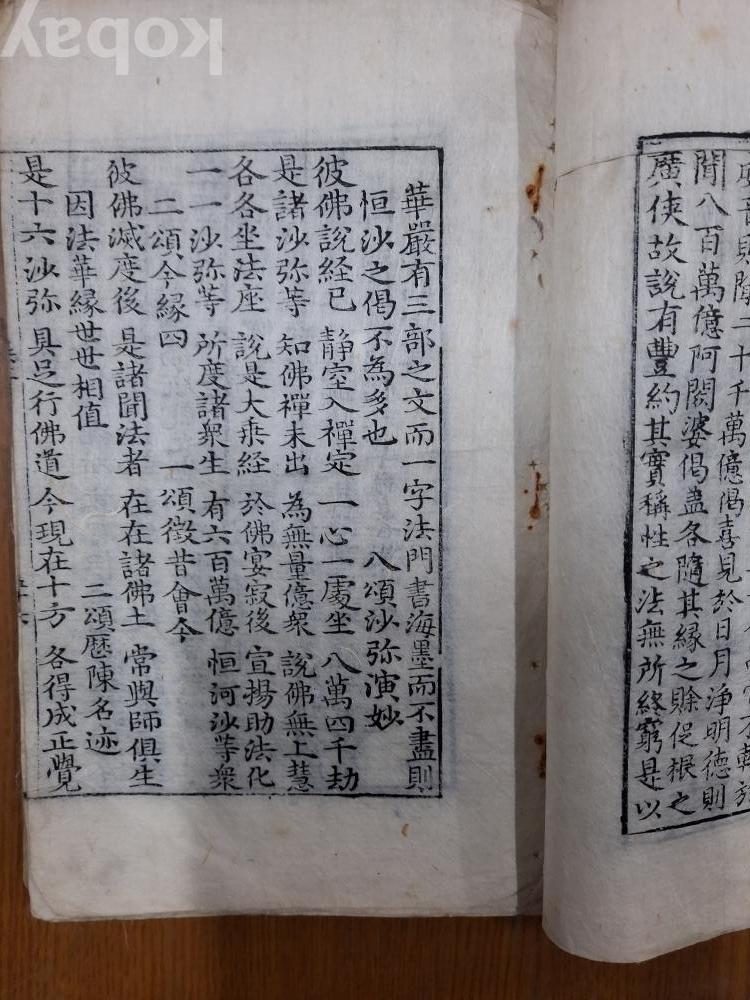 則聞二十千萬億偈喜見於日月淨明德則
聞八百萬億阿閦婆偈盡各隨其緣之賖促根之
廣俠故說有豐約其實稱性之法無所終窮是以
華嚴有三部之文而一字法門書海墨而不盡則
恒沙之偈不為多也 八頌沙弥演妙
彼佛說経已 静室入禪定 一心一處坐 八萬四千劫
是諸沙弥等 知佛禪未出 為無量億衆 說佛無上慧
各各坐法座 說是大乗経 於佛宴寂後 宣揚助法化
一一沙弥等 所度諸衆生 有六百萬億 恒河沙等衆
二頌今縁四 一頌徴昔會今
彼佛滅度後 是諸聞法者 在在諸佛土 常與師俱生
因法華縁世世相值 二頌歷陳名迹
是十六沙弥 具足行佛道 今現在十方 各得成正覺
kobay